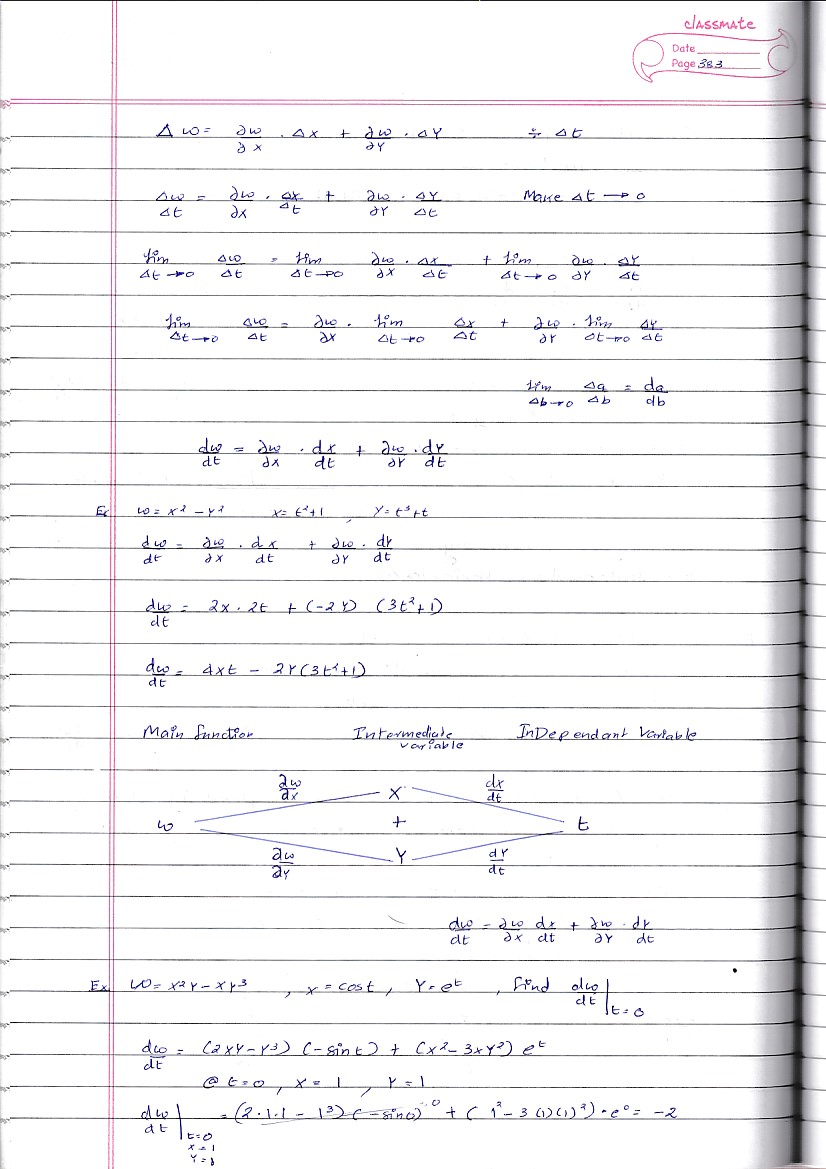 classmate
Date
Page 383
Δω = ∂ω/∂x · Δx + ∂ω/∂Y · ΔY ÷ Δt
Δω/Δt = ∂ω/∂x · Δx/Δt + ∂ω/∂Y · ΔY/Δt Make Δt → 0
lim Δt→0 Δω/Δt = lim Δt→0 ∂ω/∂x · Δx/Δt + lim Δt→0 ∂ω/∂Y · ΔY/Δt
lim Δt→0 Δω/Δt = ∂ω/∂x · lim Δt→0 Δx/Δt + ∂ω/∂Y · lim Δt→0 ΔY/Δt
lim Δb→0 Δa/Δb = da/db
dω/dt = ∂ω/∂x · dx/dt + ∂ω/∂Y · dY/dt
Ex ω = x² − Y² x = t²+1 , Y = t³+t
dω/dt = ∂ω/∂x · dx/dt + ∂ω/∂Y · dY/dt
dω/dt = 2x · 2t + (−2Y) (3t²+1)
dω/dt = 4xt − 2Y(3t²+1)
Main function Intermediate variable InDependant Variable
∂ω/dx x dx/dt
ω + t
∂ω/∂Y Y dY/dt
dω/dt = ∂ω/∂x dx/dt + ∂ω/∂Y · dY/dt
Ex ω = x²Y − xY³ , x = cost , Y = e^t , find dω/dt |t=0
dω/dt = (2xY − Y³) (−sint) + (x² − 3xY²) e^t
@ t=0 , x = 1 , Y = 1
dω/dt |t=0 x=1 Y=1 = (2·1·1 − 1³) (−sin0) 0 + (1² − 3(1)(1)²) · e⁰ = −2